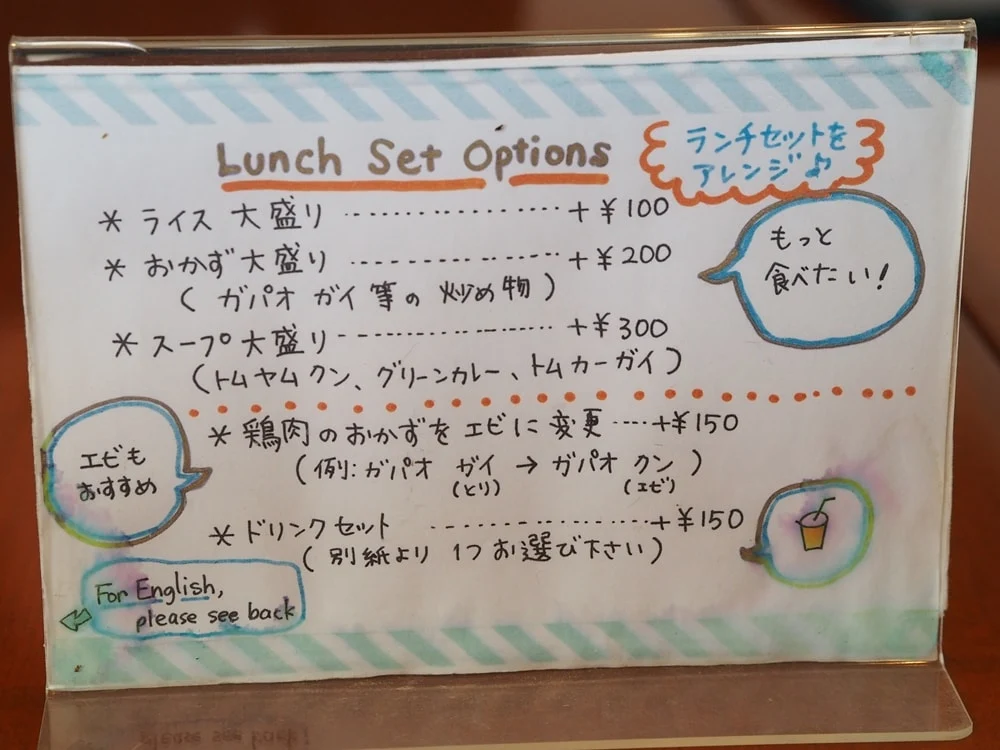 Lunch Set Options
ランチセットを
アレンジ♪
* ライス 大盛り ………………… +¥100
* おかず大盛り ………………… +¥200
( ガパオ ガイ 等の 炒め物 )
* スープ大盛り ………………… +¥300
(トムヤムクン、グリーンカレー、トムカーガイ)
もっと
食べたい!
* 鶏肉のおかずをエビに変更 …… +¥150
(例:ガパオ ガイ → ガパオ クン)
(とり) (エビ)
エビも
おすすめ
* ドリンクセット ………………… +¥150
( 別紙より 1つお選び下さい )
For English,
please see back